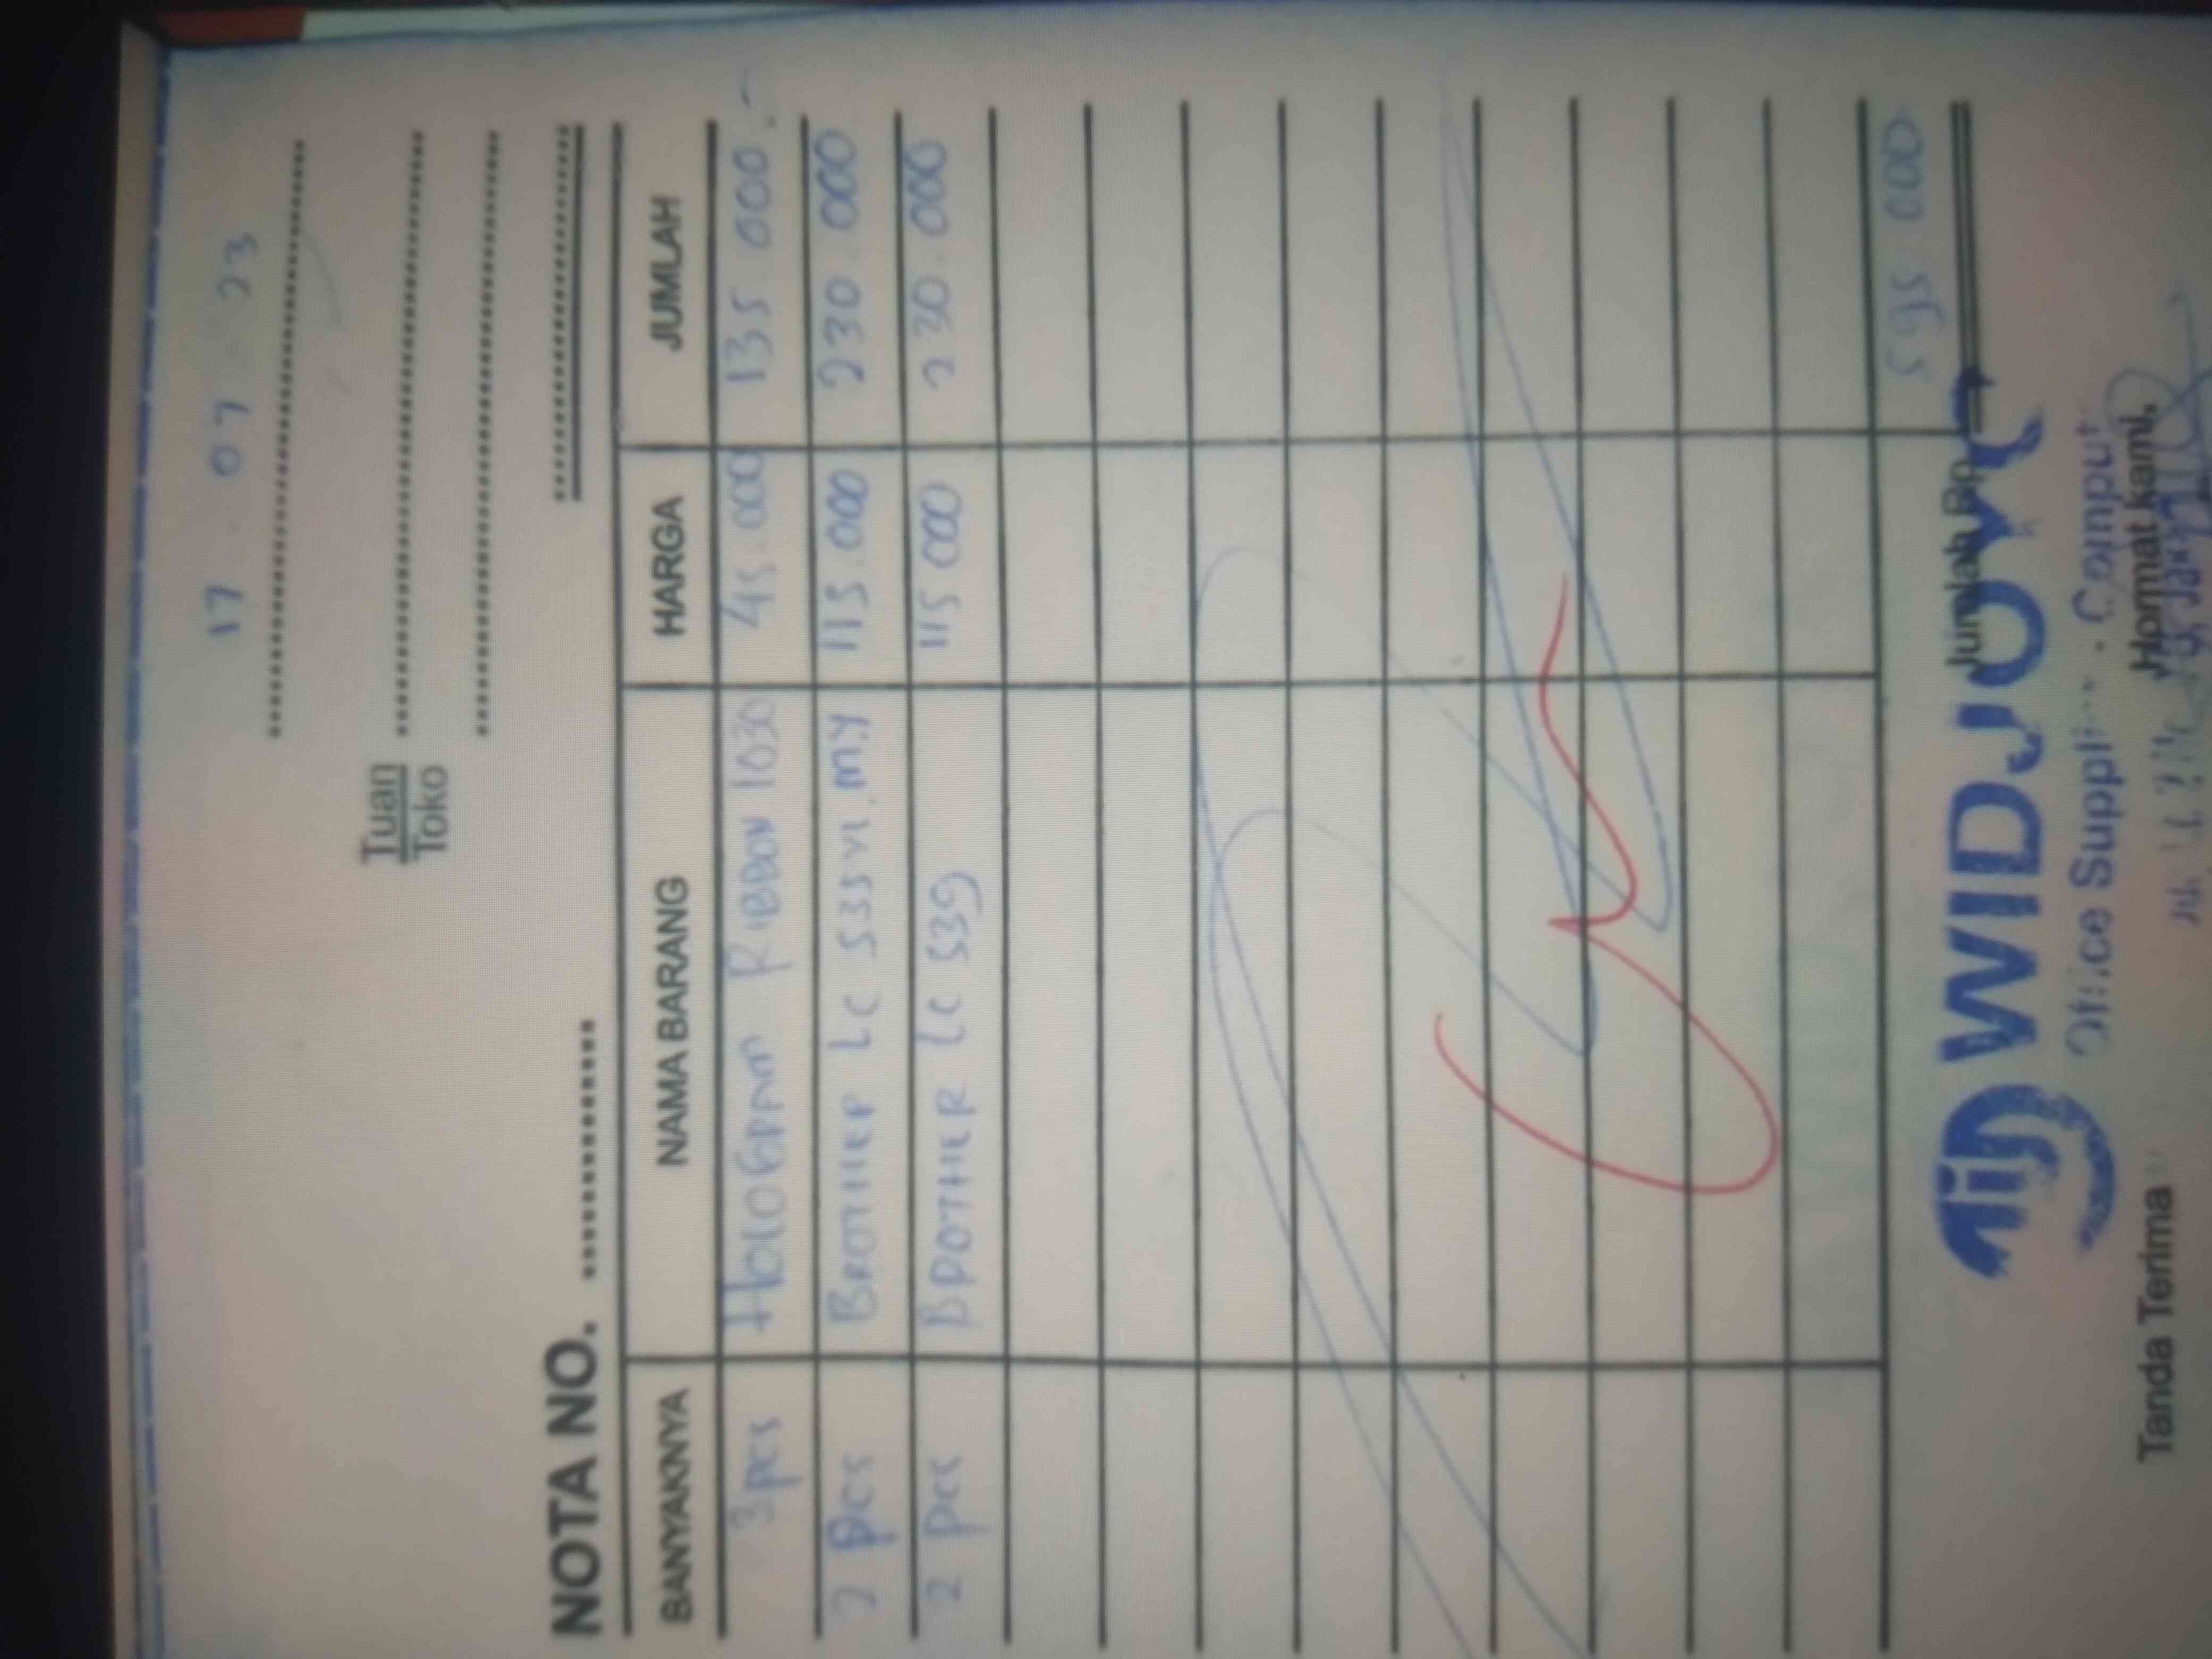 17 - 07 - 23
Tuan
Toko
NOTA NO.
BANYAKNYA NAMA BARANG HARGA JUMLAH
3 pcs HOLOGRAM RIBBON 1030 45.000 135.000.-
2 pcs BROTHER LC 535 VL M,Y 115.000 230.000
2 pcs BROTHER LC 539 115 000 230.000
Jumlah Rp. 595.000
WIDJOYO
Office Suppli - Comput
Tanda Terima Hormat kami,